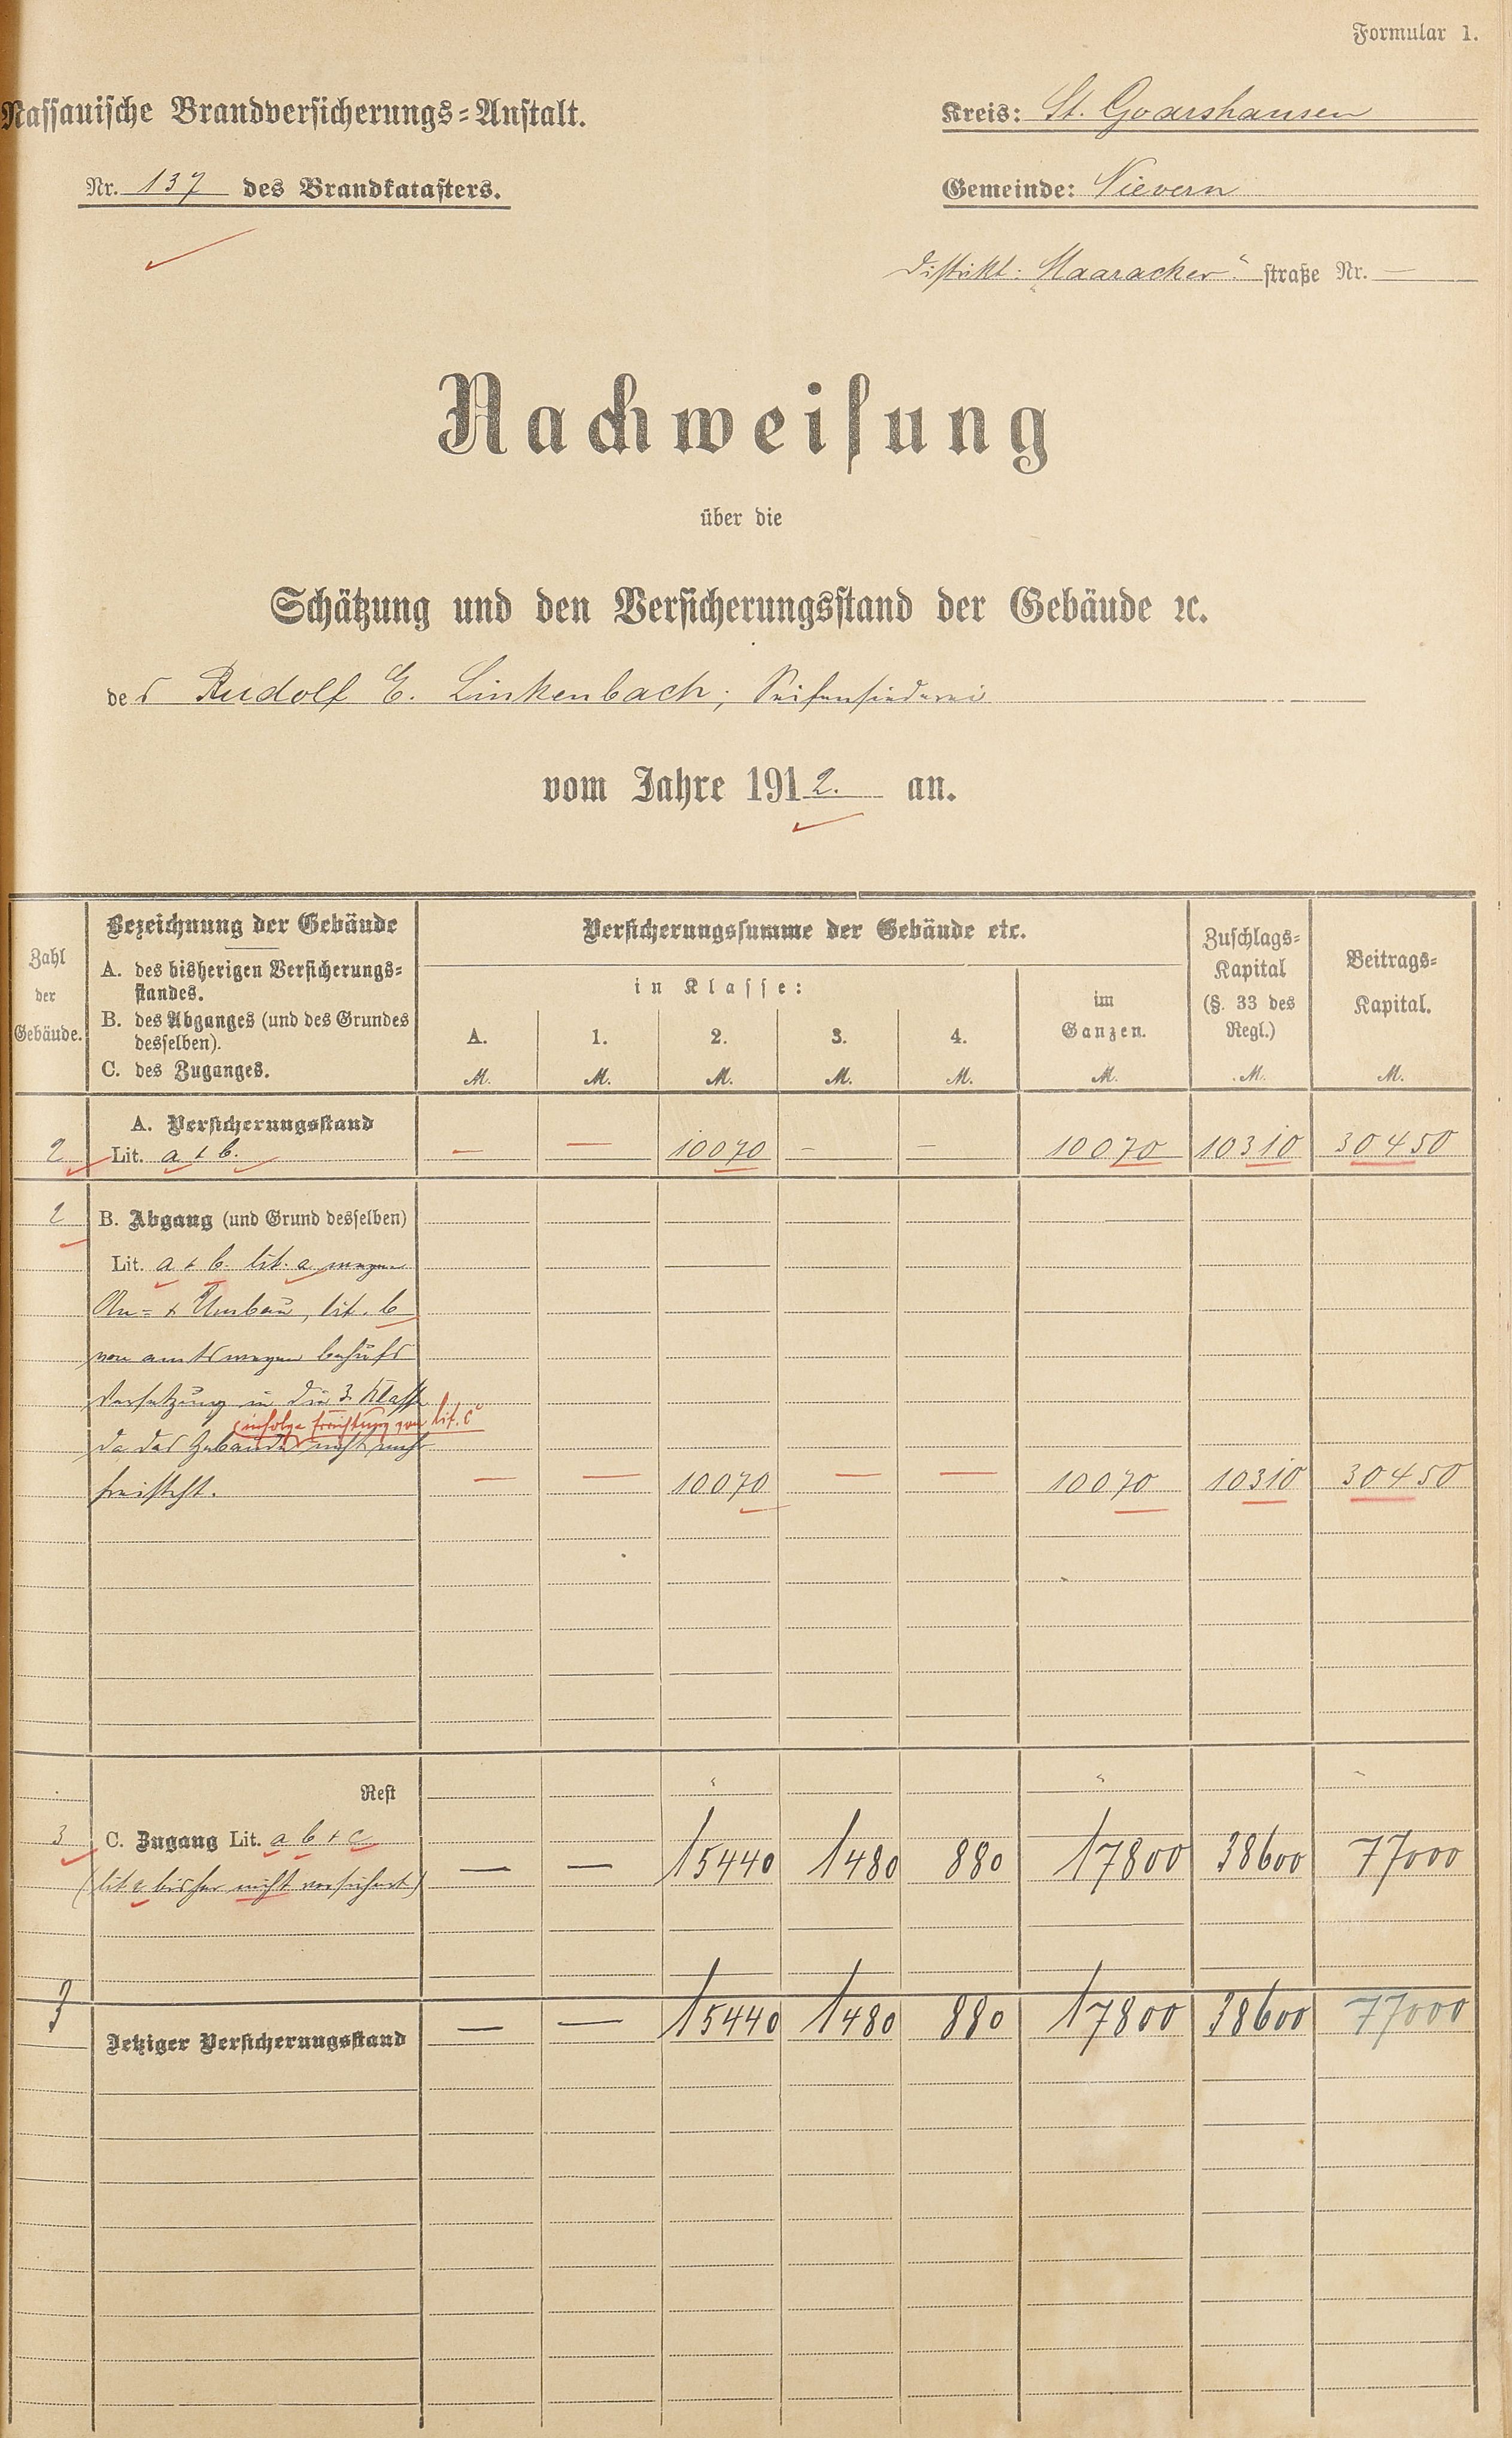 Formular 1.
Nassauische Brandversicherungs-Anstalt.
Kreis: St. Goarshausen
Nr. 137 des Brandkatasters.
Gemeinde: Nievern
Distrikt: „Maaracker“ straße Nr. —
Nachweisung
über die
Schätzung und den Versicherungsstand der Gebäude ꝛc.
des Rudolf E. Linkenbach, Seifensiederei
vom Jahre 1912. an.
Zahl der Gebäude.
Bezeichnung der Gebäude
A. des bisherigen Versicherungs-
standes.
B. des Abganges (und des Grundes
desselben).
C. des Zuganges.
Versicherungssumme der Gebäude etc.
in Klasse:
A. 1. 2. 3. 4.
M. M. M. M. M.
im
Ganzen.
M.
Zuschlags-
Kapital
(§. 33 des
Regl.)
M.
Beitrags-
Kapital.
M.
A. Versicherungsstand
2 Lit. a + b. — — 10070 — — 10070 10310 30450
2 B. Abgang (und Grund desselben)
Lit. a + b. lit. a wegen
An- + Umbau, lit. b
von amtswegen behufs
Versetzung in die 3. Klasse
(infolge Errichtung von lit. c“
da das Gebäude nicht mehr
freisteht. — — 10070 — — 10070 10310 30450
Rest " " "
3 C. Zugang Lit. a b + c
(lit c bisher nicht versichert) — — 15440 1480 880 17800 38600 77000
3 Jetziger Versicherungsstand — — 15440 1480 880 17800 38600 77000